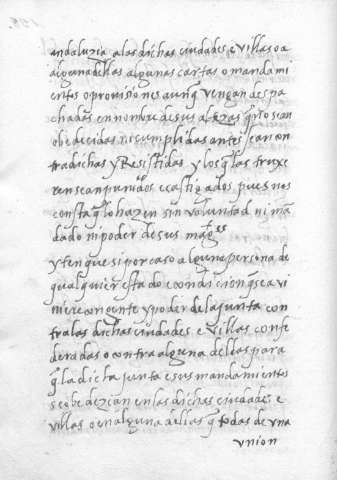 andaluzia a las dichas ciudades e villas o a
alguna dellas algunas cartas o mandami
entos o provisiones aunq vengan despa
chadas en nombre de sus altezas q no sean
obedecidas ni cumplidas antes sean con
tradichas y Resistidas y los q las truxe
ren sean punidos e castigados pues nos
consta q lo hazen sin voluntad ni mã
dado ni poder de sus magtes
yten que si por caso alguna persona de
qualquier estado e condicion q sea vi
niere con gente y poder de la junta con
tra las dichas ciudades e villas confe
deradas o contra alguna dellas para
q la dicha junta e sus mandamientos
se obedezcan en las dichas ciudades e
villas o en alguna dellas q todas de vna
vnion